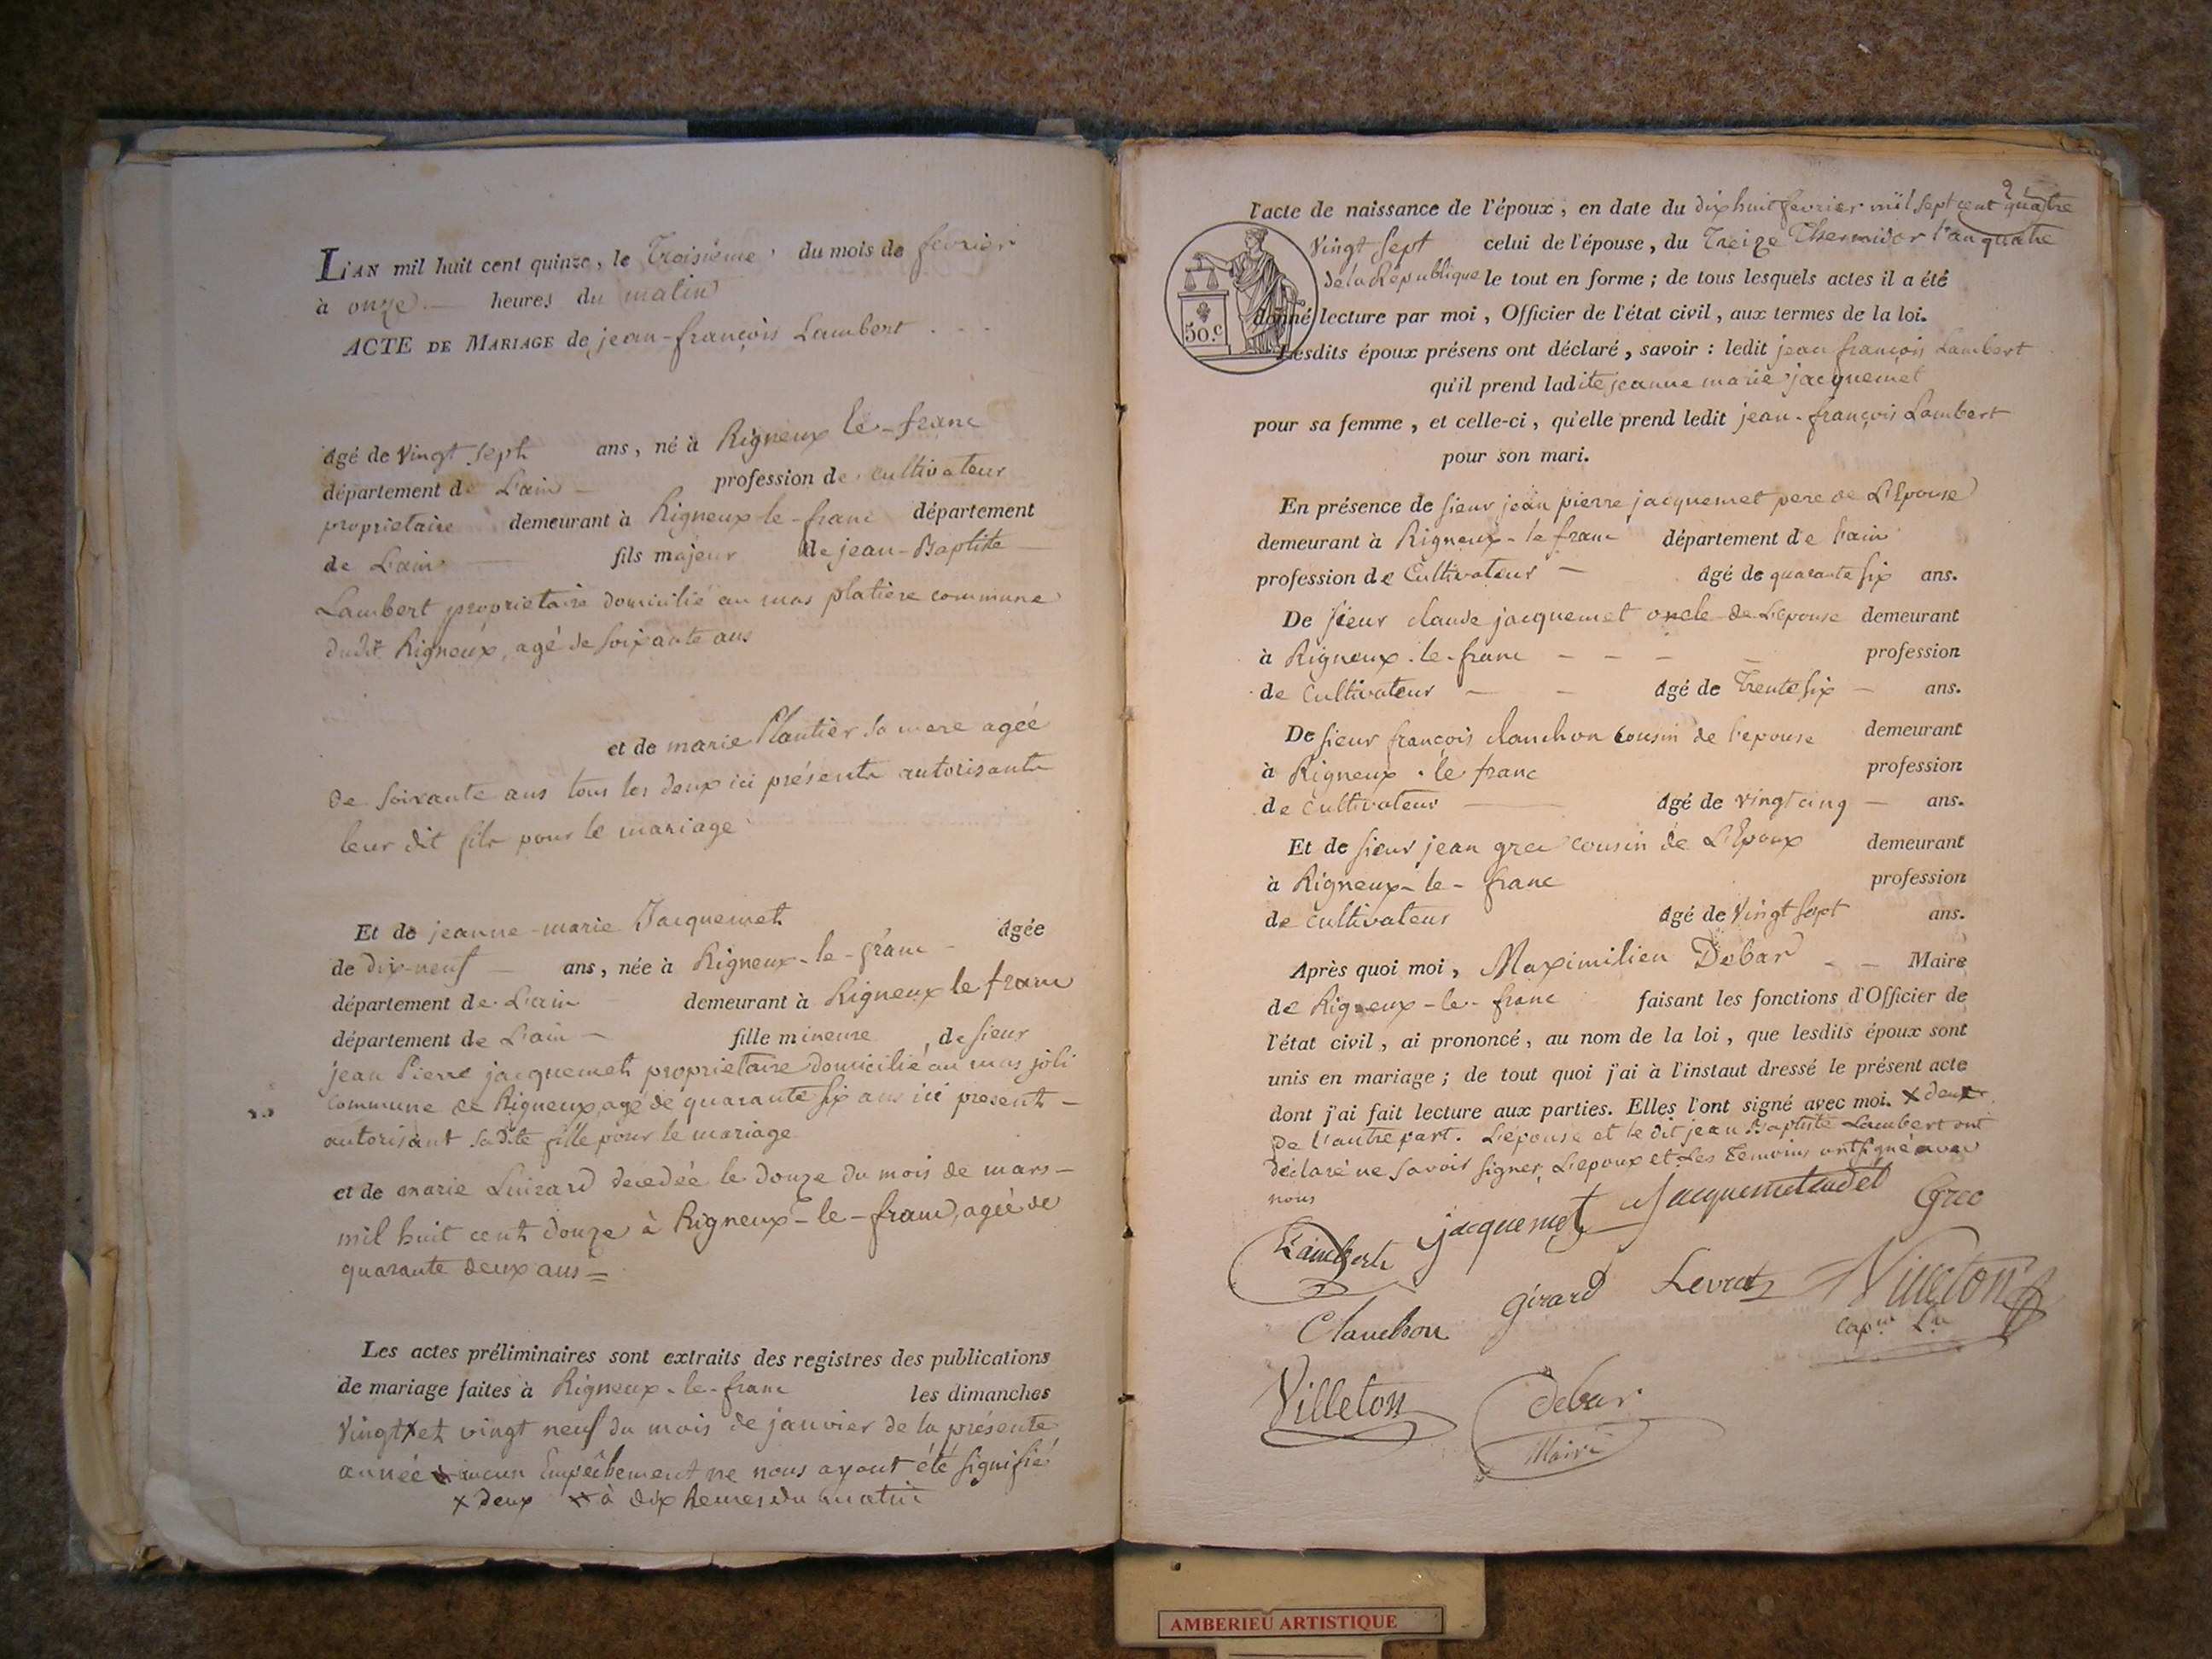 L'AN mil huit cent quinze, le Troisième du mois de fevrier
à onze heures du matin
ACTE DE MARIAGE de jean-françois Lambert
âgé de vingt sept ans, né à Rigneux le-franc
département de L'ain profession de cultivateur
proprietaire demeurant à Rigneux le-franc département
de L'ain fils majeur de jean-Baptiste
Lambert proprietaire domicilié au mas platiere commune
dudit Rigneux, agé de soixante ans
et de marie Plantier sa mere agée
de soixante ans tous les deux ici présents autorisants
leur dit fils pour le mariage
Et de jeanne-marie Jacquemet âgée
de dix-neuf ans, née à Rigneux-le-franc
département de L'ain demeurant à Rigneux le franc
département de L'ain fille mineure de sieur
jean Pierre jacquemet proprietaire domicilié au mas joli
commune de Rigneux, agé de quarante six ans ici present
autorisant sadite fille pour le mariage
et de marie Luizard decedée le douze du mois de mars
mil huit cent douze à Rigneux-le-franc, agée de
quarante deux ans
Les actes préliminaires sont extraits des registres des publications
de mariage faites à Rigneux-le-franc les dimanches
vingt x et vingt neuf du mois de janvier de la présente
année aucun Empêchement ne nous ayant été signifié
x deux à dix heures du matin
l'acte de naissance de l'époux, en date du dix huit fevrier mil sept cent quatre
Vingt Sept celui de l'épouse, du Treize Thermidor l'an quatre
de la République le tout en forme ; de tous lesquels actes il a été
donné lecture par moi, Officier de l'état civil, aux termes de la loi.
50.c
Lesdits époux présens ont déclaré, savoir : ledit jean françois Lambert
qu'il prend ladite jeanne marie jacquemet
pour sa femme, et celle-ci, qu'elle prend ledit jean-françois Lambert
pour son mari.
En présence de sieur jean pierre jacquemet pere de L'Epouse
demeurant à Rigneux-le franc département de l'ain
profession de Cultivateur âgé de quarante six ans.
De sieur claude jacquemet oncle de L'epouse demeurant
à Rigneux-le-franc profession
de Cultivateur âgé de Trente six ans.
De sieur françois clanchon cousin de l'epouse demeurant
à Rigneux-le franc profession
de cultivateur âgé de vingt cinq ans.
Et de sieur jean grec cousin de L'Epoux demeurant
à Rigneux-le-franc profession
de cultivateur âgé de Vingt Sept ans.
Après quoi moi, Maximilien Debar Maire
de Rigneux-le-franc faisant les fonctions d'Officier de
l'état civil, ai prononcé, au nom de la loi, que lesdits époux sont
unis en mariage ; de tout quoi j'ai à l'instant dressé le présent acte
dont j'ai fait lecture aux parties. Elles l'ont signé avec moi. x deux
de l'autre part. L'épouse et le dit jean Baptiste Lambert ont
déclaré ne savoir signer, L'epoux et Les temoins ont signé avec
nous
Lambert jacquemet Jacquemet Grec
Clanchon Girard Levrat Villeton
Villeton Debar
Maire
AMBERIEU ARTISTIQUE